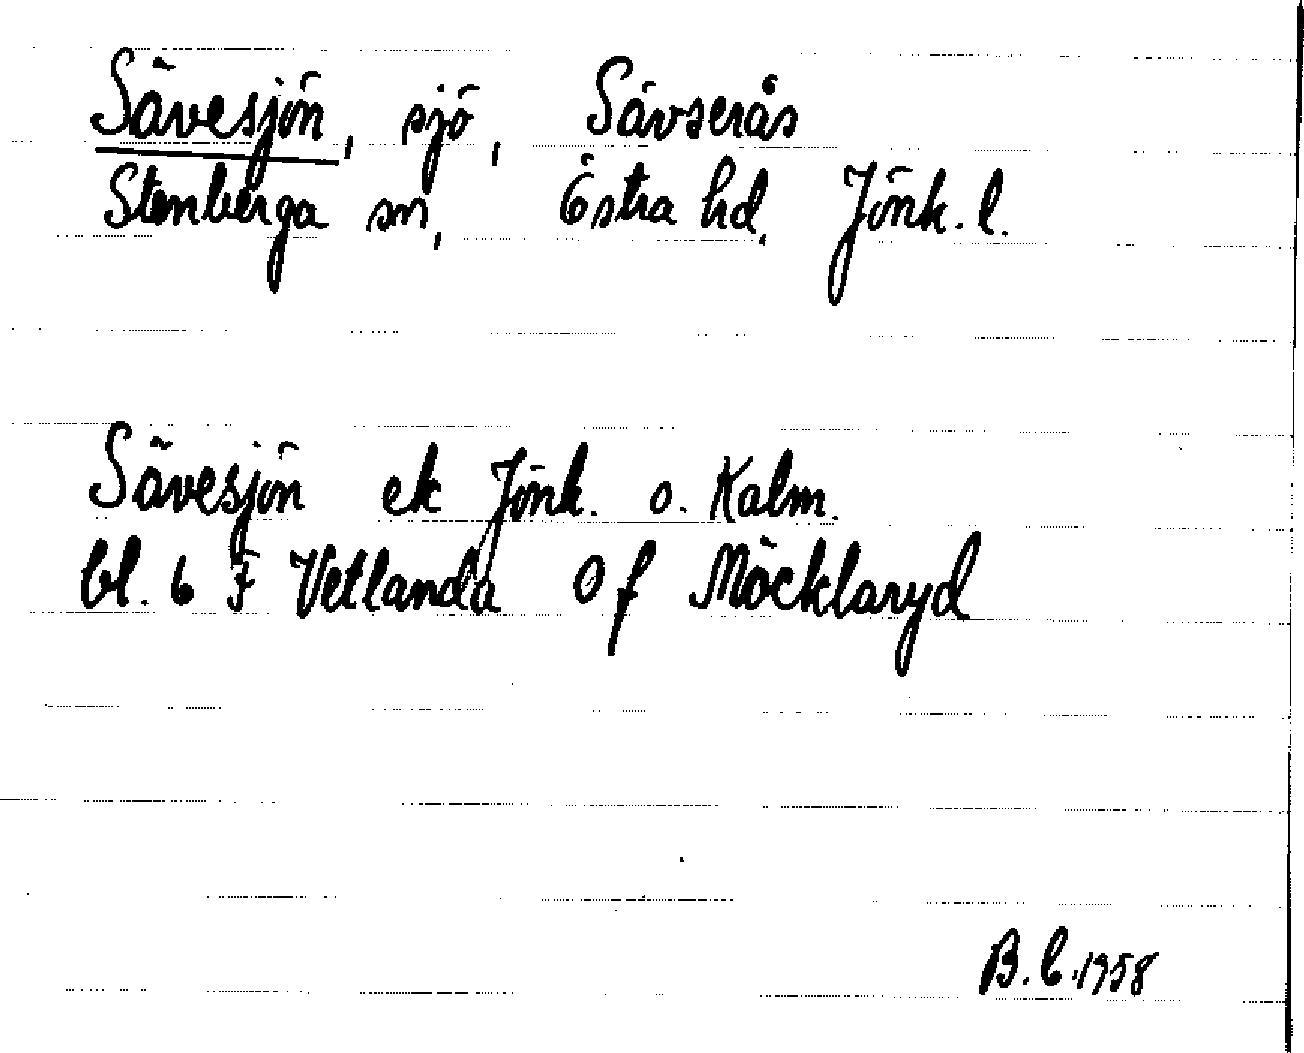 Sävesjön, sjö, Sävserås
Stenberga sn, Östra hd, Jönk. l.
Sävesjön ek Jönk. o. Kalm.
bl. 6 F Vetlanda Of Möcklaryd
B. C. 1958